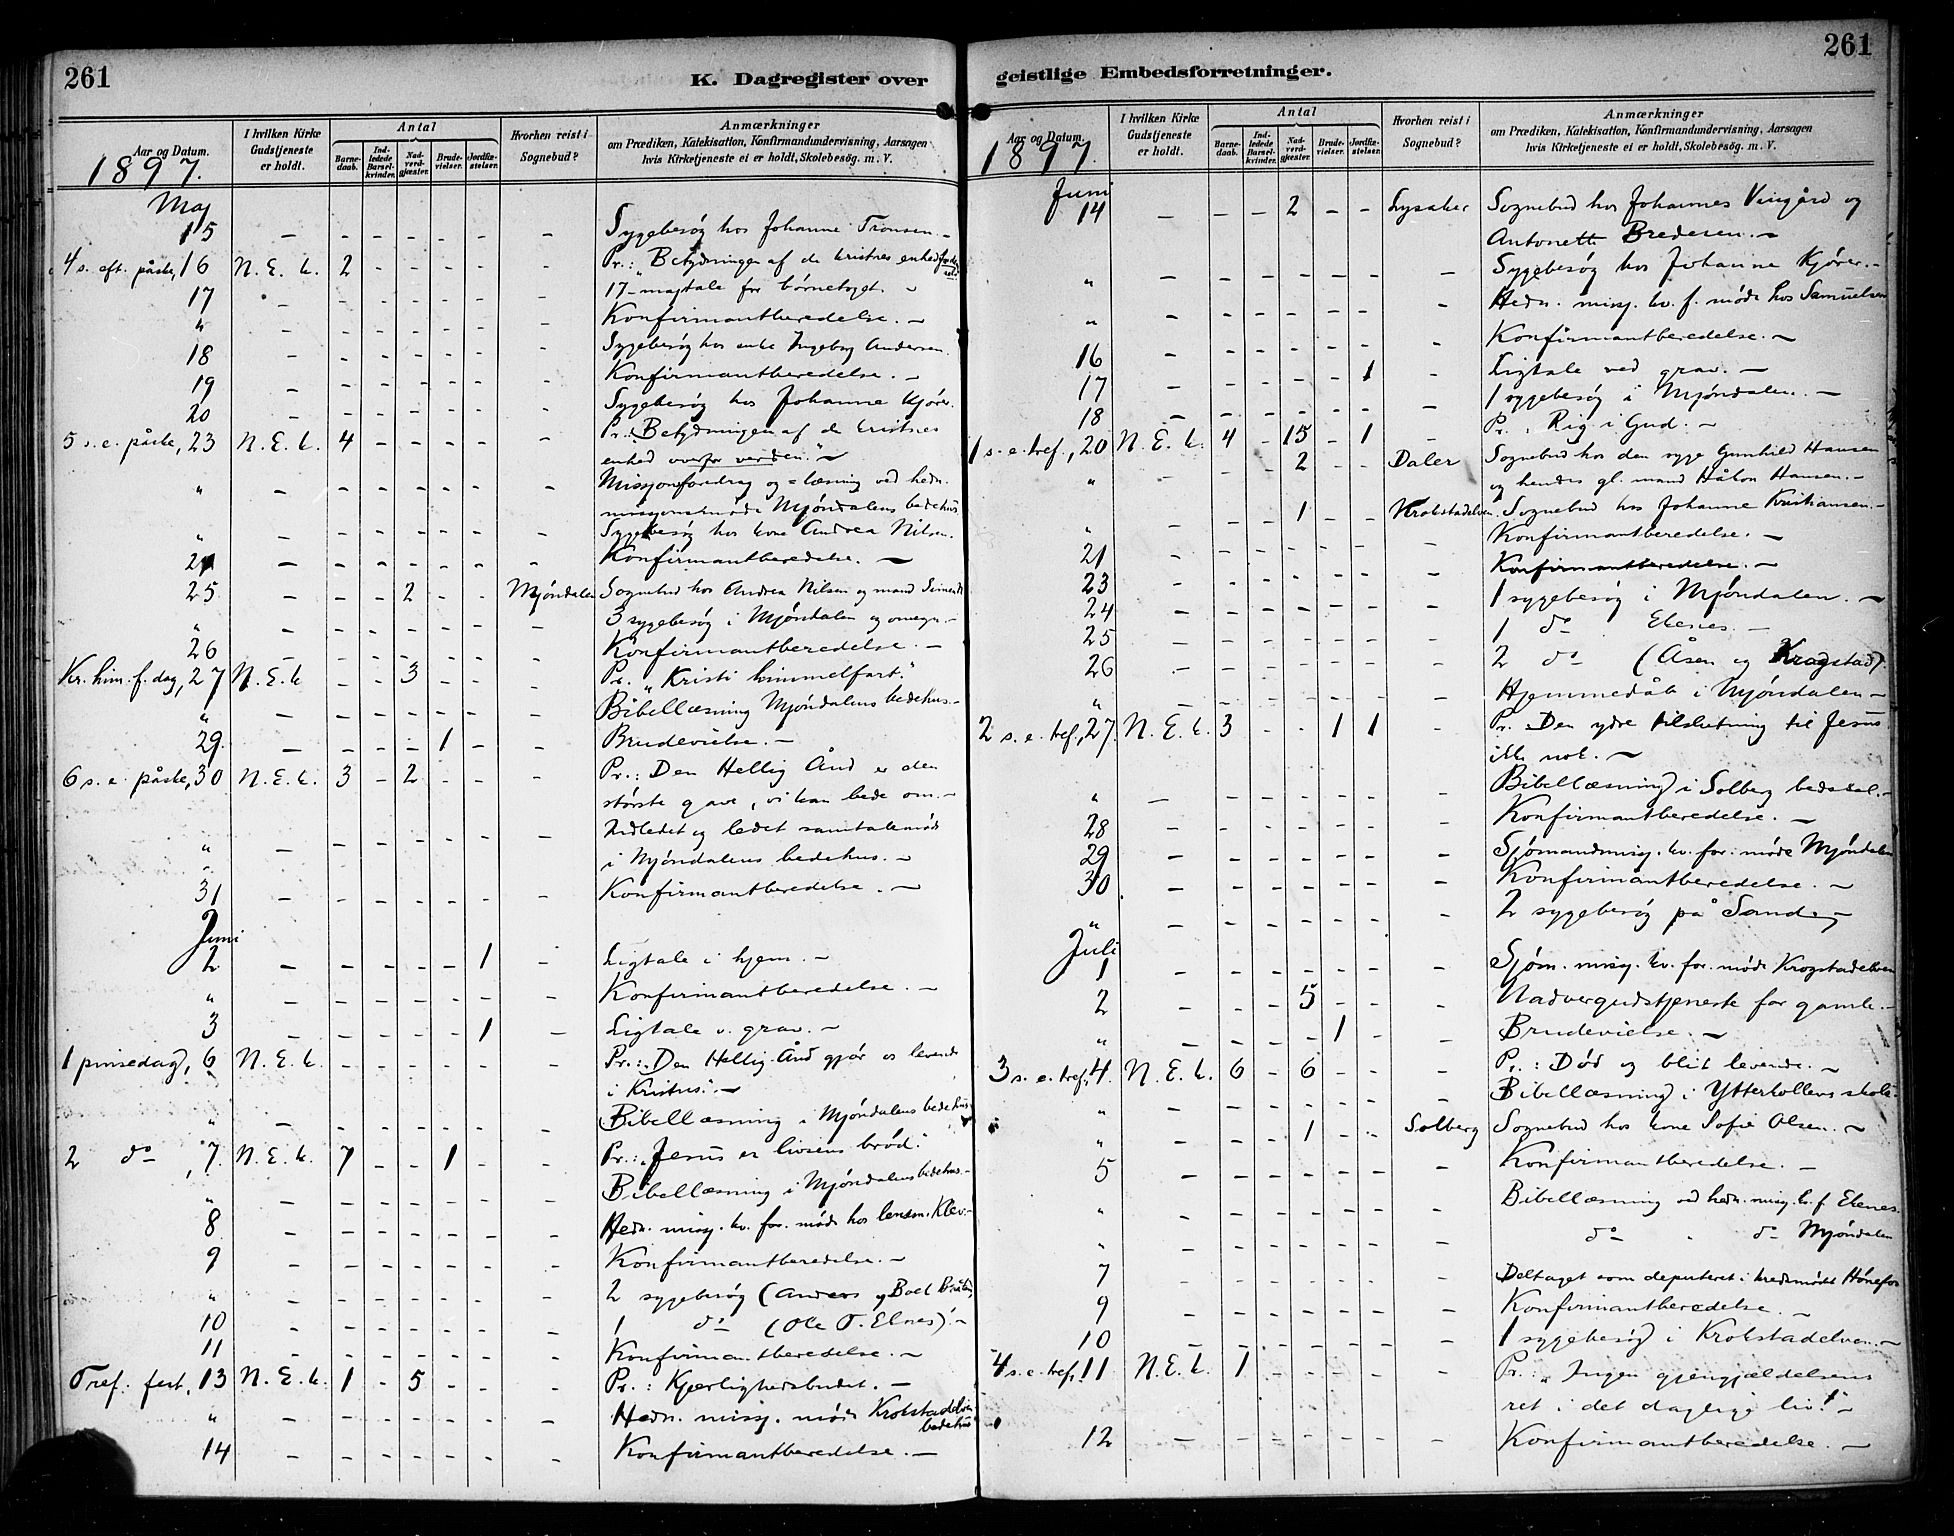 261
K. Dagregister over
Aar og Datum.
I hvilken Kirke Gudstjeneste er holdt.
Antal
Barne-daab.
Ind-ledede Barsel-kvinder.
Nad-verd-gjæster.
Brude-vielser.
Jordfæ-stelser.
Hvorhen reist i Sognebud?
Anmærkninger
om Prædiken, Katekisation, Konfirmandundervisning, Aarsagen
hvis Kirketjeneste ei er holdt, Skolebesøg. m. V.
1897.
Maj
15 – – – – – – – Sygebesøg hos Johanne Tronsen. –
4 s. eft. påske, 16 N. E. k. 2 – – – – – Pr.: Betydningen af de kristnes enhed
17 – – – – – – – 17-majtale for børnetoget. –
" – – – – – – – Konfirmantberedelse. –
18 – – – – – – – Sygebesøg hos enke Ingeborg Andersen.
19 – – – – – – – Konfirmantberedelse. –
20 – – – – – – – Sygebesøg hos Johanne Kjører.
5 s. e. påske, 23 N. E. k. 4 – – – – – Pr.: Betydningen af de kristnes
enhed overfor verden." –
" – – – – – – – Missjonsforedrag og -læsning ved hedn.
missjonsmøde Mjøndalens bedehus.
" – – – – – – – Sygebesøg hos kone Andrea Nilsen.
24 – – – – – – – Konfirmantberedelse. –
25 – – – 2 – – Mjøndalen Sognebud hos Andrea Nilsen og mand
" – – – – – – – 3 sygebesøg i Mjøndalen og omegn. –
26 – – – – – – – Konfirmantberedelse. –
Kr. him. f. dag, 27 N. E. k – – 3 – – – Pr. "Kristi himmelfart."
" – – – – – – – Bibellæsning Mjøndalens bedehus. –
29. – – – – 1 – – Brudevielse. –
6 s. e. påske, 30 N. E. k. 3 – 2 – – – Pr.: Den Hellig Ånd er den
største gave, vi kan bede om. –
" – – – – – – – Indledet og ledet samtalemøde
i Mjøndalens bedehus. –
31 – – – – – – – Konfirmantberedelse. –
Juni
2 – – – – – 1 – Ligtale i hjem. –
" – – – – – – – Konfirmantberedelse. –
3 – – – – – 1 – Ligtale v. grav. –
1 pinsedag, 6 N. E. k. – – – – – – Pr.: "Den Hellig-Ånd gjør os levende
i Kristus." –
" – – – – – – – Bibellæsning i Mjøndalens bedehus.
2 do , 7. N. E. k. 7 – – 1 – – Pr.: "Jesus er livsens brød."
" – – – – – – – Bibellæsning i Mjøndalens bedehus. –
8 – – – – – – – Hedn. missj. kv. for. møde hos lensm. Klev. –
9 – – – – – – – Konfirmantberedelse. –
" – – – – – – – 2 sygebesøg (Anders og Boel
10 – – – – – – – 1 do (Ole T. Elnes). –
11 – – – – – – – Konfirmantberedelse. –
Tref. fest, 13 N. E. k. 1 – 5 – – – Pr.: Kjærlighedsbudet. –
" – – – – – – – Hedn. missj. møde Krokstadelven bedehus
14 – – – – – – – Konfirmantberedelse. –
261
geistlige Embedsforretninger.
Aar og Datum.
I hvilken Kirke Gudstjeneste er holdt.
Antal
Barne-daab.
Ind-ledede Barsel-kvinder.
Nad-verd-gjæster.
Brude-vielser.
Jordfæ-stelser.
Hvorhen reist i Sognebud?
Anmærkninger
om Prædiken, Katekisation, Konfirmandundervisning, Aarsagen
hvis Kirketjeneste ei er holdt, Skolebesøg m. V.
1897.
Juni
14 – – – 2 – – Lysaker Sognebud hos Johannes Viingård og
Antonette Bredesen. –
" – – – – – – – Sygebesøg hos Johanne Kjører. –
" – – – – – – – Hedn. missj. kv. f. møde hos Samuelsen
16 – – – – – – – Konfirmantberedelse. –
17 – – – – – 1 – Ligtale ved grav. –
18 – – – – – – – 1 sygebesøg i Mjøndalen. –
1 s. e. tref., 20 N. E. k. 4 – 15 – 1 – Pr.: Rig i Gud. –
" – – 2 – – Daler Sognebud hos den syge Gunhild Hansen
og hendes gl. mand Håkon Hansen. –
" – – – 1 – – Krokstadelven. Sognebud hos Johanne Kristiansen. –
21 – – – – – – – Konfirmantberedelse. –
23 – – – – – – – Konfirmantberedelse. –
24 – – – – – – – 1 sygebesøg i Mjøndalen. –
25 – – – – – – – 1 do Ekenes. –
26 – – – – – – – 2 do (Åsen og Kragstad).
" – – – – – – – Hjemmedåb i Mjøndalen –
2 s. e. tref., 27. N. E. k. 3 – – 1 1 – Pr. Den ydre tilslutning til Jesus
ikke nok. –
" – – – – – – – Bibellæsning i Solberg bedesal. –
28 – – – – – – – Konfirmantberedelse. –
29 – – – – – – – Sjømandsmissj. kv. for. møde Mjøndalen
30 – – – – – – – Konfirmantberedelse. –
" – – – – – – – 2 sygebesøg på Sande –
Juli
1 – – – – – – – Sjøm. missj. kv. for. møde Krogstadelven
2 – – – 5 – – – Nadvergudstjeneste for gamle. –
" – – – – 1 – – Brudevielse. –
3 s. e. tref., 4. N. E. k. 6 – 6 – – – Pr.: Død og blit levende. –
" – – – – – – – Bibellæsning i Ytterkollens skole.
" – – – 1 – – Solberg Sognebud hos kone Sofie Olsen. –
5 – – – – – – – Konfirmantberedelse. –
" – – – – – – – Bibellæsning ved hedn. missj. k. f. Ekenes.
" – – – – – – – do " do Mjøndalen
7 – – – – – – – Deltaget som deputeret i kredsmødet Hønefos
9 – – – – – – – Konfirmantberedelse. –
10 – – – – – – – 1 sygebesøg i Krokstadelven. –
4 s. e. tref. 11 N. E. k. 1 Pr.: "Ingen gjengjældelsens
ret i det daglige liv!" –
12 – – – – – – – Konfirmantberedelse. –